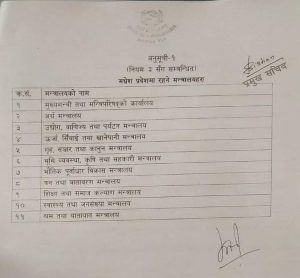 अनुसूची-१
(नियम ३ सँग सम्बन्धित)
मधेश प्रदेशमा रहने मन्त्रालयहरु
प्रमुख सचिव
क्र.सं. मन्त्रालयको नाम
१ मुख्यमन्त्री तथा मन्त्रिपरिषद्को कार्यालय
२ अर्थ मन्त्रालय
३ उद्योग, वाणिज्य तथा पर्यटन मन्त्रालय
४ ऊर्जा, सिँचाई तथा खानेपानी मन्त्रालय
५ गृह, सञ्चार तथा कानून मन्त्रालय
६ भूमि व्यवस्था, कृषि तथा सहकारी मन्त्रालय
७ भौतिक पूर्वाधार विकास मन्त्रालय
८ वन तथा वातावरण मन्त्रालय
९ शिक्षा तथा समाज कल्याण मन्त्रालय
१० स्वास्थ्य तथा जनसंख्या मन्त्रालय
११ श्रम तथा यातायात मन्त्रालय